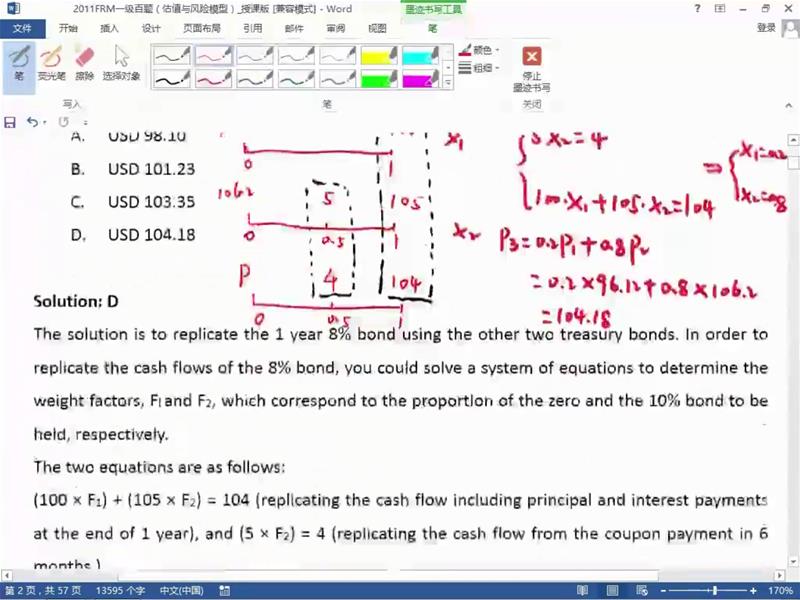 2011FRM一级百题（估值与风险模型）_授课版 [兼容模式] - Word
墨迹书写工具
登录
文件 开始 插入 设计 页面布局 引用 邮件 审阅 视图 笔
笔 荧光笔 擦除 选择对象
颜色
粗细
停止
墨迹书写
写入 笔 关闭
A. USD 98.10
B. USD 101.23
C. USD 103.35
D. USD 104.18
0 1
106.2 5 105
0 0.5 1
P 4 104
0 0.5 1
X1
X2
5X2=4
100·X1+105·X2=104
⇒
X1=0.2
X2=0.8
P3=0.2P1+0.8P2
=0.2×96.12+0.8×106.2
=104.18
Solution: D
The solution is to replicate the 1 year 8% bond using the other two treasury bonds. In order to
replicate the cash flows of the 8% bond, you could solve a system of equations to determine the
weight factors, F1 and F2, which correspond to the proportion of the zero and the 10% bond to be
held, respectively.
The two equations are as follows:
(100 × F1) + (105 × F2) = 104 (replicating the cash flow including principal and interest payments
at the end of 1 year), and (5 × F2) = 4 (replicating the cash flow from the coupon payment in 6
months.)
第 2 页，共 57 页 13595 个字 中文(中国) 170%